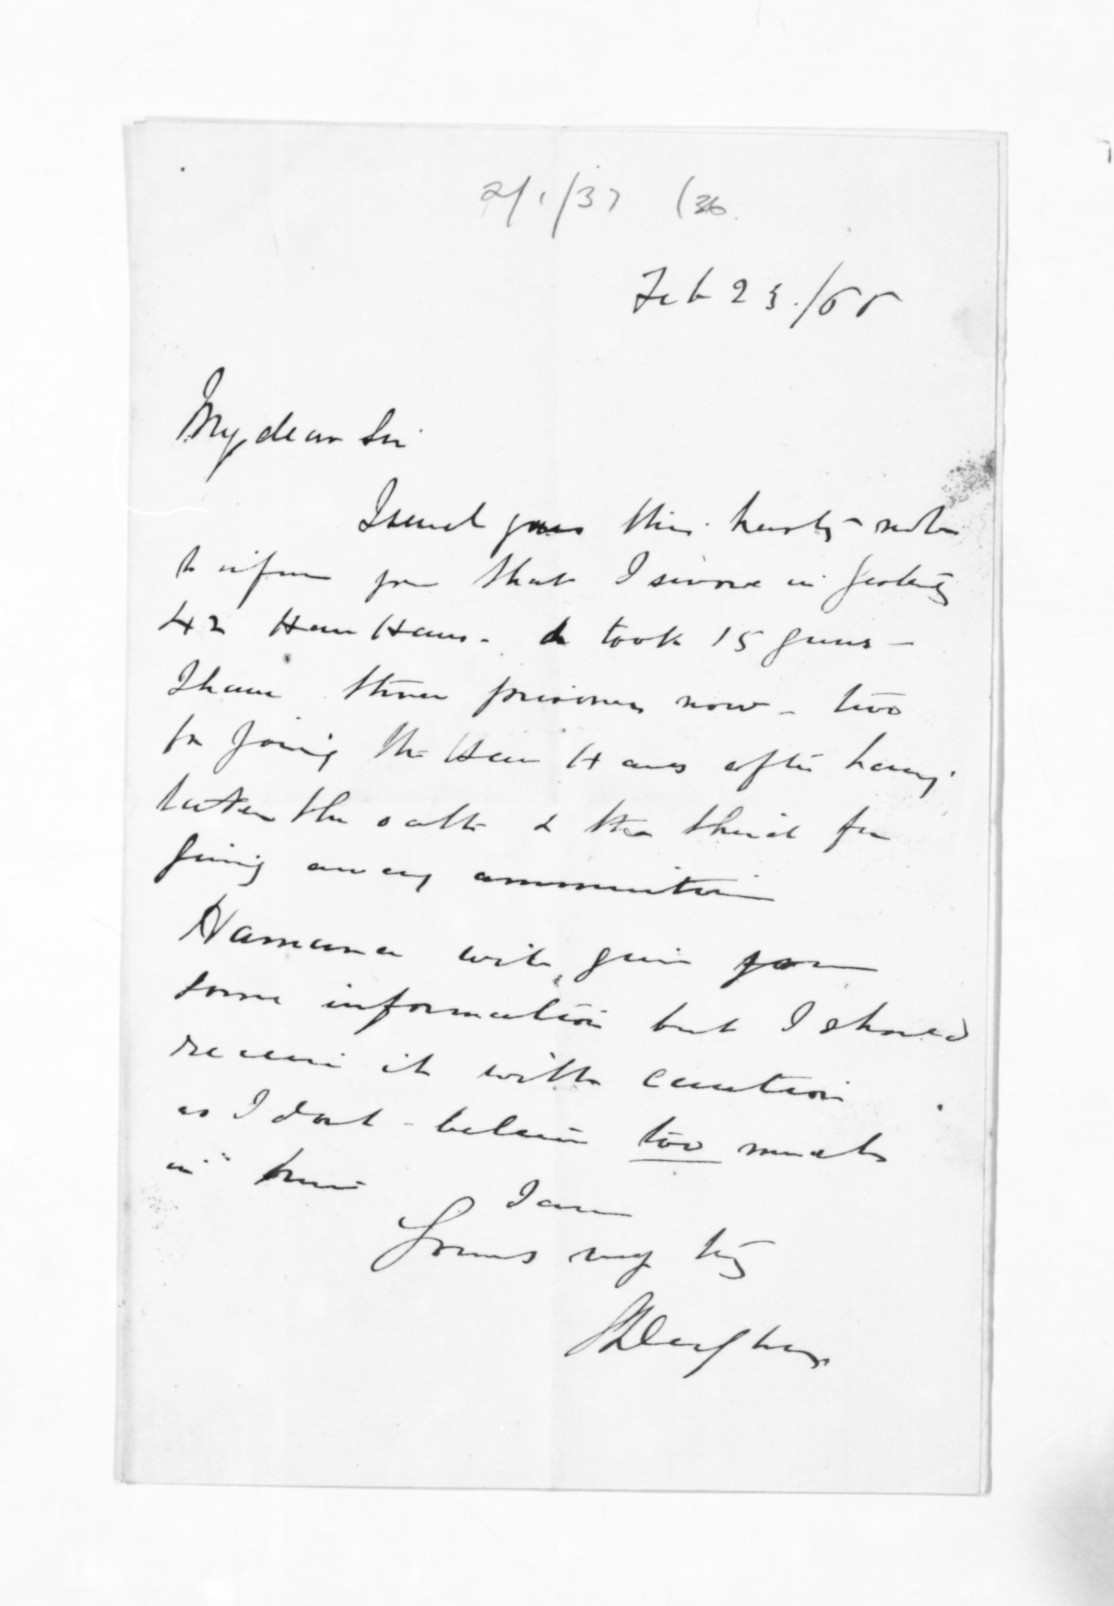 2/1/37 (36.
Feb 23./66
My dear Sir
I send you this hasty note
to inform you that I swore in yesterday
42 Hau Haus - & took 15 guns -
I have three prisoners now - two
for joining the Hau Haus after having
taken the oath & the third for
giving away ammunition
Hamana will give you
some information but I should
receive it with caution
as I dont - believe too much
in him
I am
Yours very try